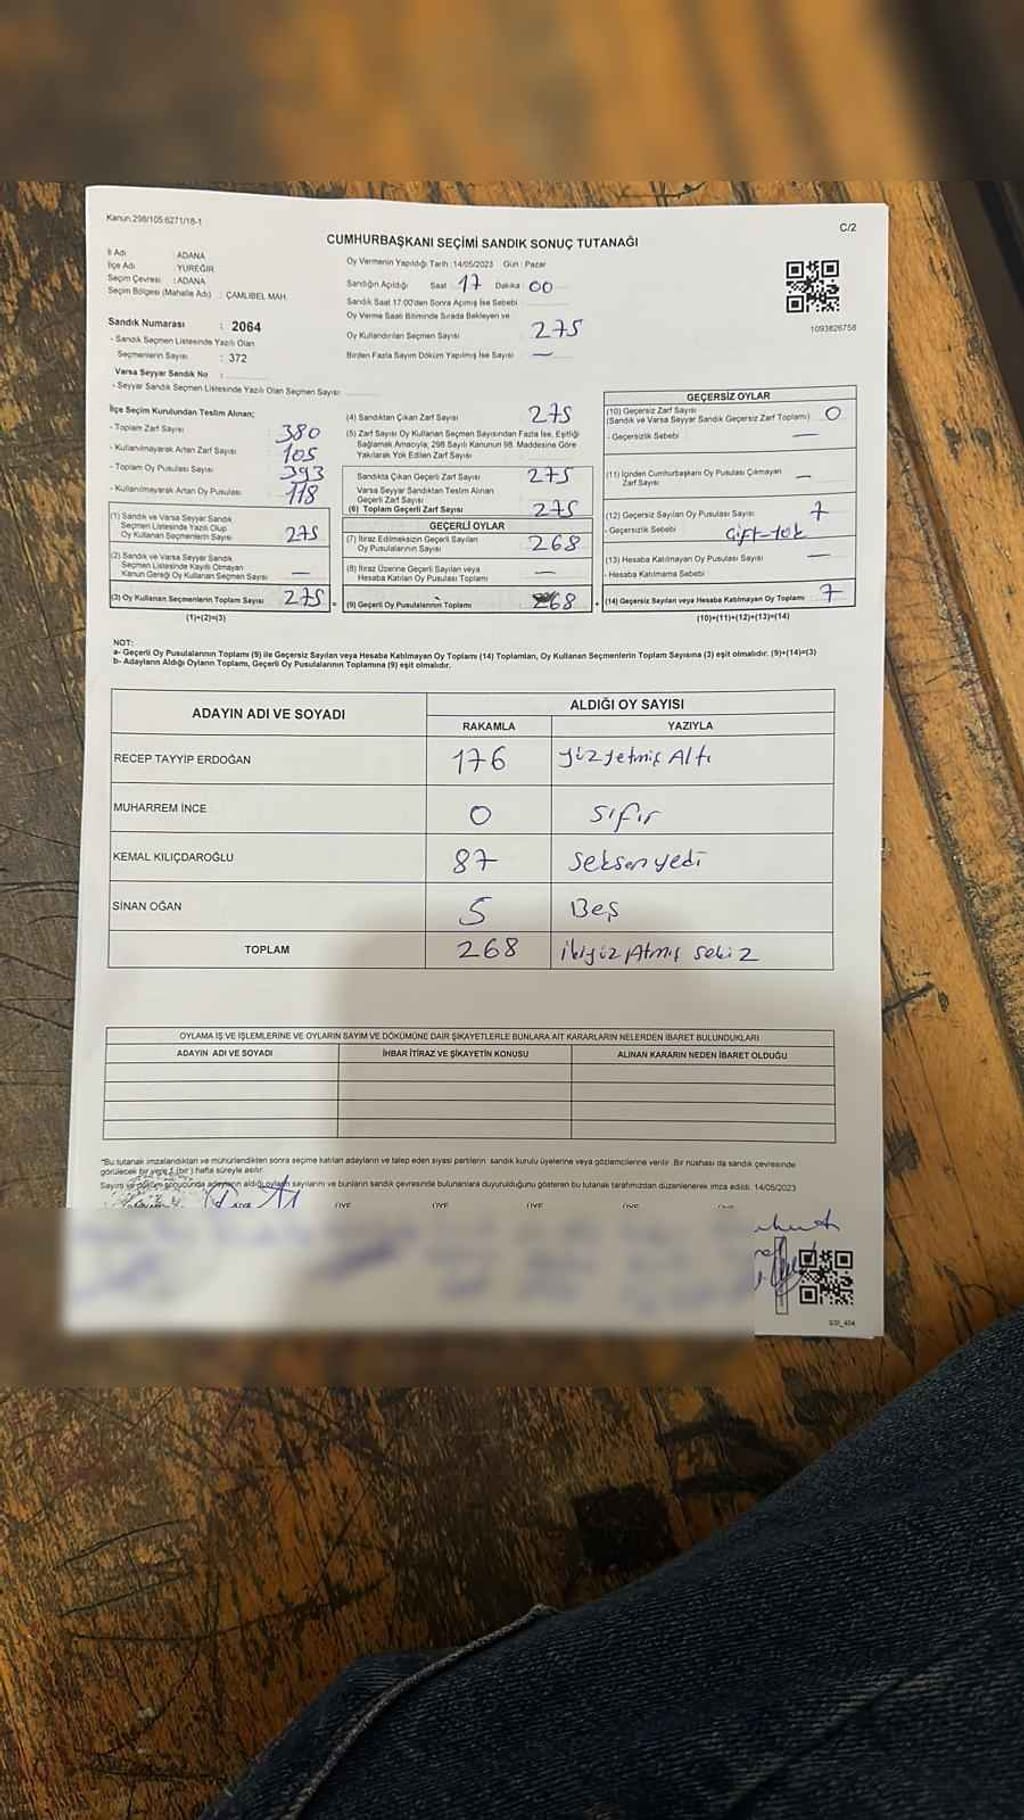 Kanun:298/105:6271/18-1
C/2
CUMHURBAŞKANI SEÇİMİ SANDIK SONUÇ TUTANAĞI
İl Adı : ADANA
İlçe Adı : YÜREĞİR
Seçim Çevresi : ADANA
Seçim Bölgesi (Mahalle Adı) : ÇAMLIBEL MAH.
Oy Vermenin Yapıldığı Tarih :14/05/2023 Gün : Pazar
Sandığın Açıldığı Saat 17 Dakika 00
Sandık Saat 17:00'den Sonra Açılmış İse Sebebi
Oy Verme Saati Bitiminde Sırada Bekleyen ve
Oy Kullandırılan Seçmen Sayısı 275
Birden Fazla Sayım Döküm Yapılmış İse Sayısı —
1093826758
Sandık Numarası : 2064
- Sandık Seçmen Listesinde Yazılı Olan
Seçmenlerin Sayısı : 372
Varsa Seyyar Sandık No :
- Seyyar Sandık Seçmen Listesinde Yazılı Olan Seçmen Sayısı
İlçe Seçim Kurulundan Teslim Alınan;
- Toplam Zarf Sayısı 380
- Kullanılmayarak Artan Zarf Sayısı 105
- Toplam Oy Pusulası Sayısı 393
- Kullanılmayarak Artan Oy Pusulası 118
(1) Sandık ve Varsa Seyyar Sandık
Seçmen Listesinde Yazılı Olup
Oy Kullanan Seçmenlerin Sayısı 275
(2) Sandık ve Varsa Seyyar Sandık
Seçmen Listesinde Kayıtlı Olmayan
Kanun Gereği Oy Kullanan Seçmen Sayısı —
(3) Oy Kullanan Seçmenlerin Toplam Sayısı 275
(1)+(2)=(3)
(4) Sandıktan Çıkan Zarf Sayısı 275
(5) Zarf Sayısı Oy Kullanan Seçmen Sayısından Fazla İse, Eşitliği
Sağlamak Amacıyla, 298 Sayılı Kanunun 98. Maddesine Göre
Yakılarak Yok Edilen Zarf Sayısı
Sandıkta Çıkan Geçerli Zarf Sayısı 275
Varsa Seyyar Sandıktan Teslim Alınan
Geçerli Zarf Sayısı
(6) Toplam Geçerli Zarf Sayısı 275
GEÇERLİ OYLAR
(7) İtiraz Edilmeksizin Geçerli Sayılan
Oy Pusulalarının Sayısı 268
(8) İtiraz Üzerine Geçerli Sayılan veya
Hesaba Katılan Oy Pusulası Toplamı —
(9) Geçerli Oy Pusulalarının Toplamı 268
GEÇERSİZ OYLAR
(10) Geçersiz Zarf Sayısı
(Sandık ve Varsa Seyyar Sandık Geçersiz Zarf Toplamı) 0
- Geçersizlik Sebebi —
(11) İçinden Cumhurbaşkanı Oy Pusulası Çıkmayan
Zarf Sayısı —
(12) Geçersiz Sayılan Oy Pusulası Sayısı 7
- Geçersizlik Sebebi
(13) Hesaba Katılmayan Oy Pusulası Sayısı —
- Hesaba Katılmama Sebebi
(14) Geçersiz Sayılan veya Hesaba Katılmayan Oy Toplamı 7
(10)+(11)+(12)+(13)=(14)
NOT:
a- Geçerli Oy Pusulalarının Toplamı (9) ile Geçersiz Sayılan veya Hesaba Katılmayan Oy Toplamı (14) Toplamları, Oy Kullanan Seçmenlerin Toplam Sayısına (3) eşit olmalıdır. (9)+(14)=(3)
b- Adayların Aldığı Oyların Toplamı, Geçerli Oy Pusulalarının Toplamına (9) eşit olmalıdır.
ADAYIN ADI VE SOYADI
ALDIĞI OY SAYISI
RAKAMLA YAZIYLA
RECEP TAYYİP ERDOĞAN 176 Yüzyetmiş Altı
MUHARREM İNCE 0 Sıfır
KEMAL KILIÇDAROĞLU 87 Seksen yedi
SİNAN OĞAN 5 Beş
TOPLAM 268 ikiyüz Atmış sekiz
OYLAMA İŞ VE İŞLEMLERİNE VE OYLARIN SAYIM VE DÖKÜMÜNE DAİR ŞİKAYETLERLE BUNLARA AİT KARARLARIN NELERDEN İBARET BULUNDUKLARI
ADAYIN ADI VE SOYADI İHBAR İTİRAZ VE ŞİKAYETİN KONUSU ALINAN KARARIN NEDEN İBARET OLDUĞU
*Bu tutanak imzalandıktan ve mühürlendikten sonra seçime katılan adayların ve talep eden siyasi partilerin sandık kurulu üyelerine veya gözlemcilerine verilir. Bir nüshası da sandık çevresinde
görülecek bir yere 1 (bir) hafta süreyle asılır.
Sayım ve döküm sonucunda adayların aldığı oyların sayılarını ve bunların sandık çevresinde bulunanlara duyurulduğunu gösteren bu tutanak tarafımızdan düzenlenerek imza edildi. 14/05/2023
ÜYE ÜYE ÜYE ÜYE ÜYE